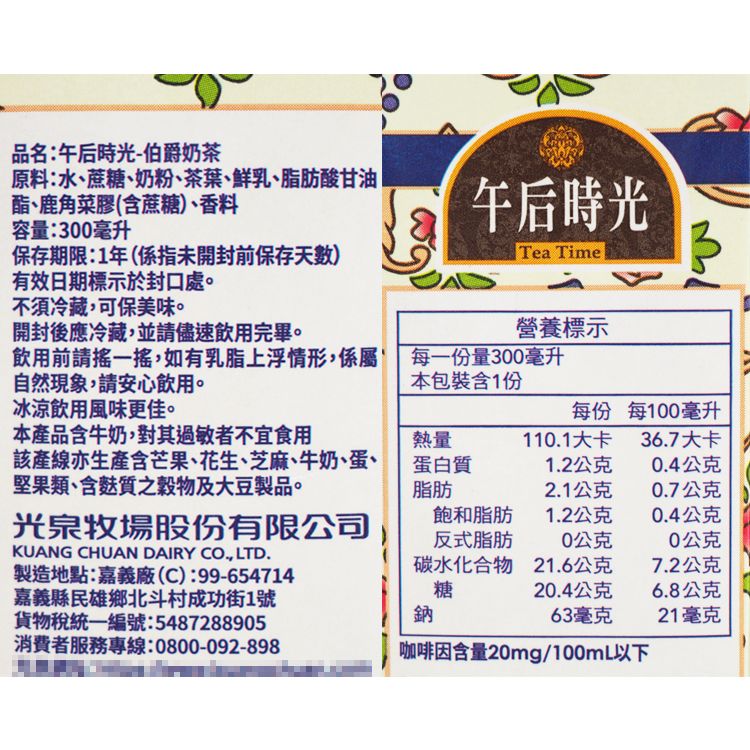 品名:午后時光-伯爵奶茶
原料:水、蔗糖、奶粉、茶葉、鮮乳、脂肪酸甘油
酯、鹿角菜膠(含蔗糖)、香料
容量:300毫升
保存期限:1年(係指未開封前保存天數)
有效日期標示於封口處。
不須冷藏,可保美味。
開封後應冷藏,並請儘速飲用完畢。
飲用前請搖一搖,如有乳脂上浮情形,係屬
自然現象,請安心飲用。
冰涼飲用風味更佳。
本產品含牛奶,對其過敏者不宜食用
該產線亦生產含芒果、花生、芝麻、牛奶、蛋、
堅果類、含麩質之穀物及大豆製品。
光泉牧場股份有限公司
KUANG CHUAN DAIRY CO., LTD.
製造地點:嘉義廠(C):99-654714
嘉義縣民雄鄉北斗村成功街1號
貨物稅統一編號:5487288905
消費者服務專線:0800-092-898
午后時光
Tea Time
營養標示
每一份量300毫升
本包裝含1份
每份 每100毫升
熱量 110.1大卡 36.7大卡
蛋白質 1.2公克 0.4公克
脂肪 2.1公克 0.7公克
飽和脂肪 1.2公克 0.4公克
反式脂肪 0公克 0公克
碳水化合物 21.6公克 7.2公克
糖 20.4公克 6.8公克
鈉 63毫克 21毫克
咖啡因含量20mg/100mL以下